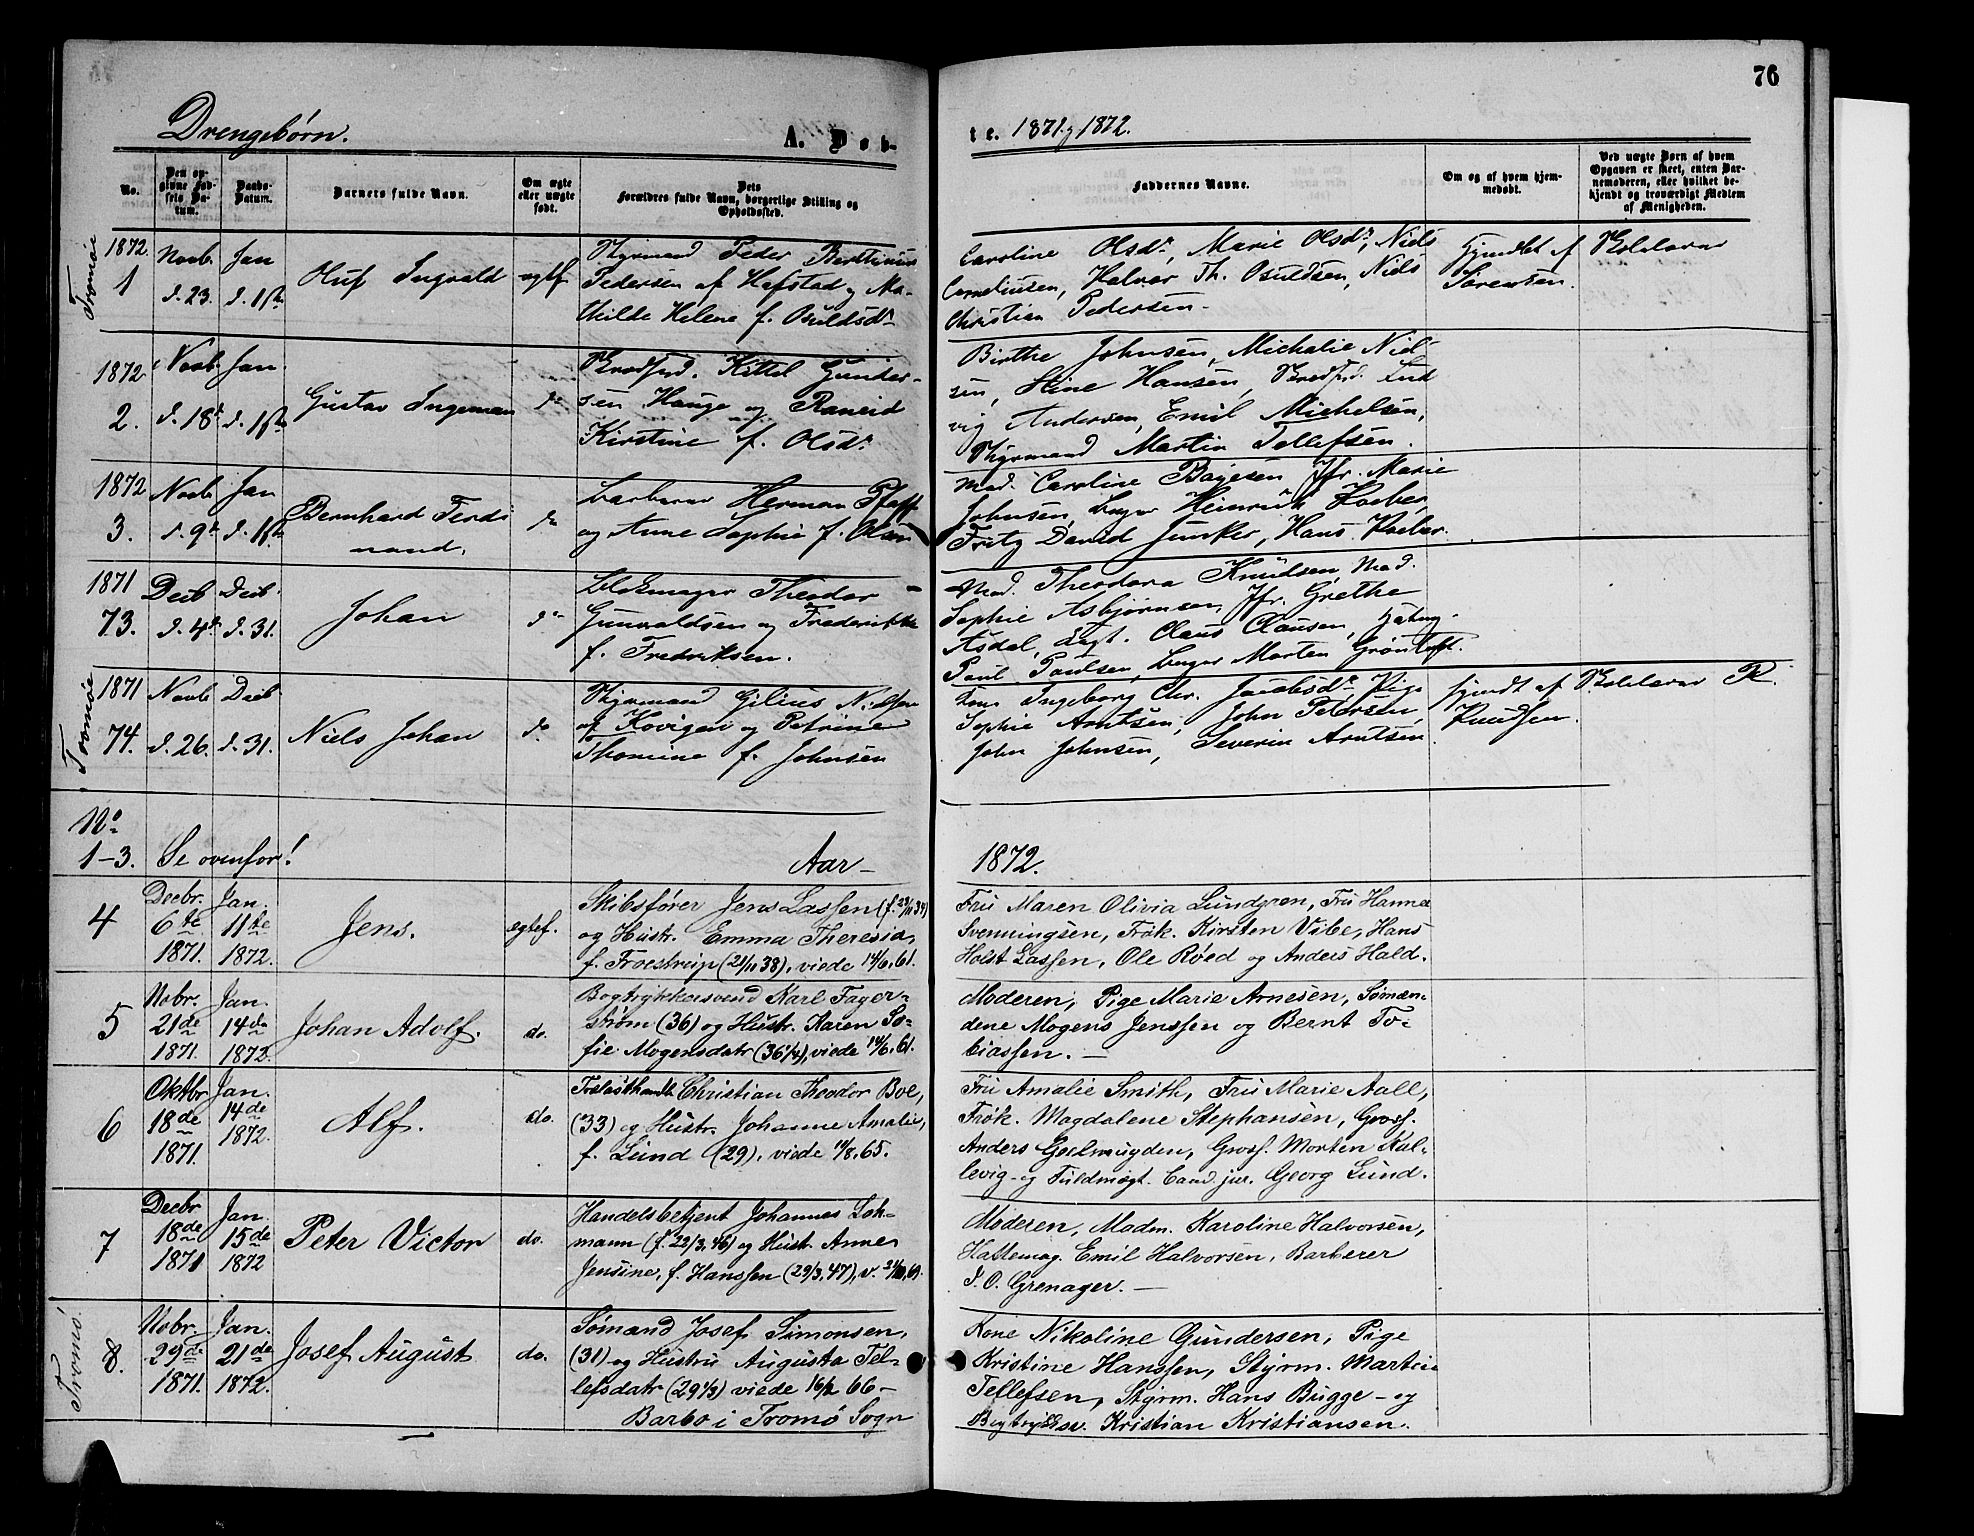 76
Drengebørn.
A. Døb-
te. 1871 og 1872.
No.
Den opgivne Fødsels Datum.
Daabs-Datum.
Barnets fulde Navn.
Om ægte eller uægte født.
Dets Forældres fulde Navn, borgerlige Stilling og Opholdssted.
Faddernes Navne.
Om og af hvem hjemmedøbt.
Ved uægte Børn af hvem Opgaven er skeet, enten Barnemoderen, eller hvilket bekjendt og troværdigt Medlem af Menigheden.
Tromøe
1872
1
Novb.
d. 23.
Jan
d. 1ste
Oluf Ingvald
egtf
Styrmand Peder Berthinius
Pedersen af Hofstad og Ma-
thilde Helene f. Osuldsdr
Caroline Olsdr, Marie Olsdr, Niels
Corneliusen, Halvor Th. Osuldsen, Niels
Christian Pedersen
Hjemdøbt af Skolelærer
Sørensen.
1872
2.
Novb.
d. 18d
Jan.
d. 1ste
Gustav Ingeman
do
Skredfrd. Kittel Gunder-
sen Hauge og Raneid
Kirstine f. Olsdr
Birthe Johnsen, Michalie Niel-
sen, Stine Hansen, Skredfrd. Lud
vig Andersen, Emil Michelsen,
Styrmand Martin Tellefsen.
1872
3.
Novb
d. 9d
Jan
d. 1ste
Bernhard Ferdi
nand.
do
Barberer Herman Pfaff
og Anne Sophie f. Olsen
Mad. Caroline Bojesen Jfr. Marie
Johnsen, Bager Heinrich Koeber,
Fritz David Junker, Hans Koeber.
1871
73.
Decb
d. 4d
Decb.
d. 31.
Johan
do
Blokmager Theodor
Gunvaldsen og Frederikke
f. Fredriksen.
Mad. Theodora Knudsen, Mad.
Sophie Asbjørnsen, Jfr. Grethe
Asdal, Claus Clausen,
Paul Paulsen, Bager Morten Grøntoft.
Tromøe
1871
74.
Novb
d. 26.
Decb
d. 31.
Niels Johan
do
Styrmand Gilius Nielsen
af Kovigen og Petrine
Thomine f. Johnsen
Kone Ingeborg Chr. Jacobsdr, Pige
Sophie Arntsen, John Petersen,
John Johnsen, Severin Arntsen
Hjemdt af Skolelærer R.
Knudsen.
No
1-3. Se ovenfor!
Aar
1872.
4
Decbr.
6te
1871.
Jan.
11te
1872.
Jens.
egtef.
Skibsfører Jens Lassen
og Hustr. Emma Theresia,
f. Troestrup (21/11 38), viede 14/6, 61.
Fru Maren Olivia Lundgren, Fru Hanna
Svenningsen, Frøk. Kirsten Vibe, Hans
Holst Lassen, Ole Røed og Anders Hald.
5
Nobr.
21de
1871.
Jan.
14de
1872.
Johan Adolf.
do.
Bogtrykkersvend Karl Fager-
strøm (36) og Hustr. Karen So-
fie Mogensdatr (36 1/4), viede 14/6, 61.
Moderen, Pige Marie Arnesen, Sømæn-
dene Mogens Jenssen og Bernt To-
biassen.
6
Oktbr
18de
1871.
Jan.
14de
1872.
Alf.
do.
Trælasthandl. Christian Theodor Boe,
(33) og Hustr. Johanne Amalie,
f. Lund (29), viede 11/8, 65.
Fru Amalie Smith, Fru Marie Aall,
Frøk. Magdalene Stephansen, Gross.
Anders Gjelmuyden, Gross. Morten Kal-
levig og Fuldmægt. Cand. jur. Georg Lund.
7
Decbr
18de
1871
Jan.
15de
1872
Peter Victor
do.
Handelsbetjent Johannes Loh-
mann (f. 22/3, 46) og Hustr. Anne
Jensine, f. Hanssen (29/3, 47), v.
Moderen, Madm. Karoline Halvorsen,
Hattemag. Emil Halvorsen, Barberer
I. O. Grenager.
Tromø.
8.
Nobr.
29de
1871.
Jan.
21de
1872.
Josef August
do.
Sømand Josef Simonsen,
(31) og Hustru Augusta Tel-
lefsdatr (29 1/3) viede 16/2 66
Barbo i Tromø Sogn
Kone Nikoline Gundersen, Pige
Kristine Hanssen, Styrm. Martin
Tellefsen, Styrm. Hans Bugge og
Bogtryksv. Kristian Kristiansen.